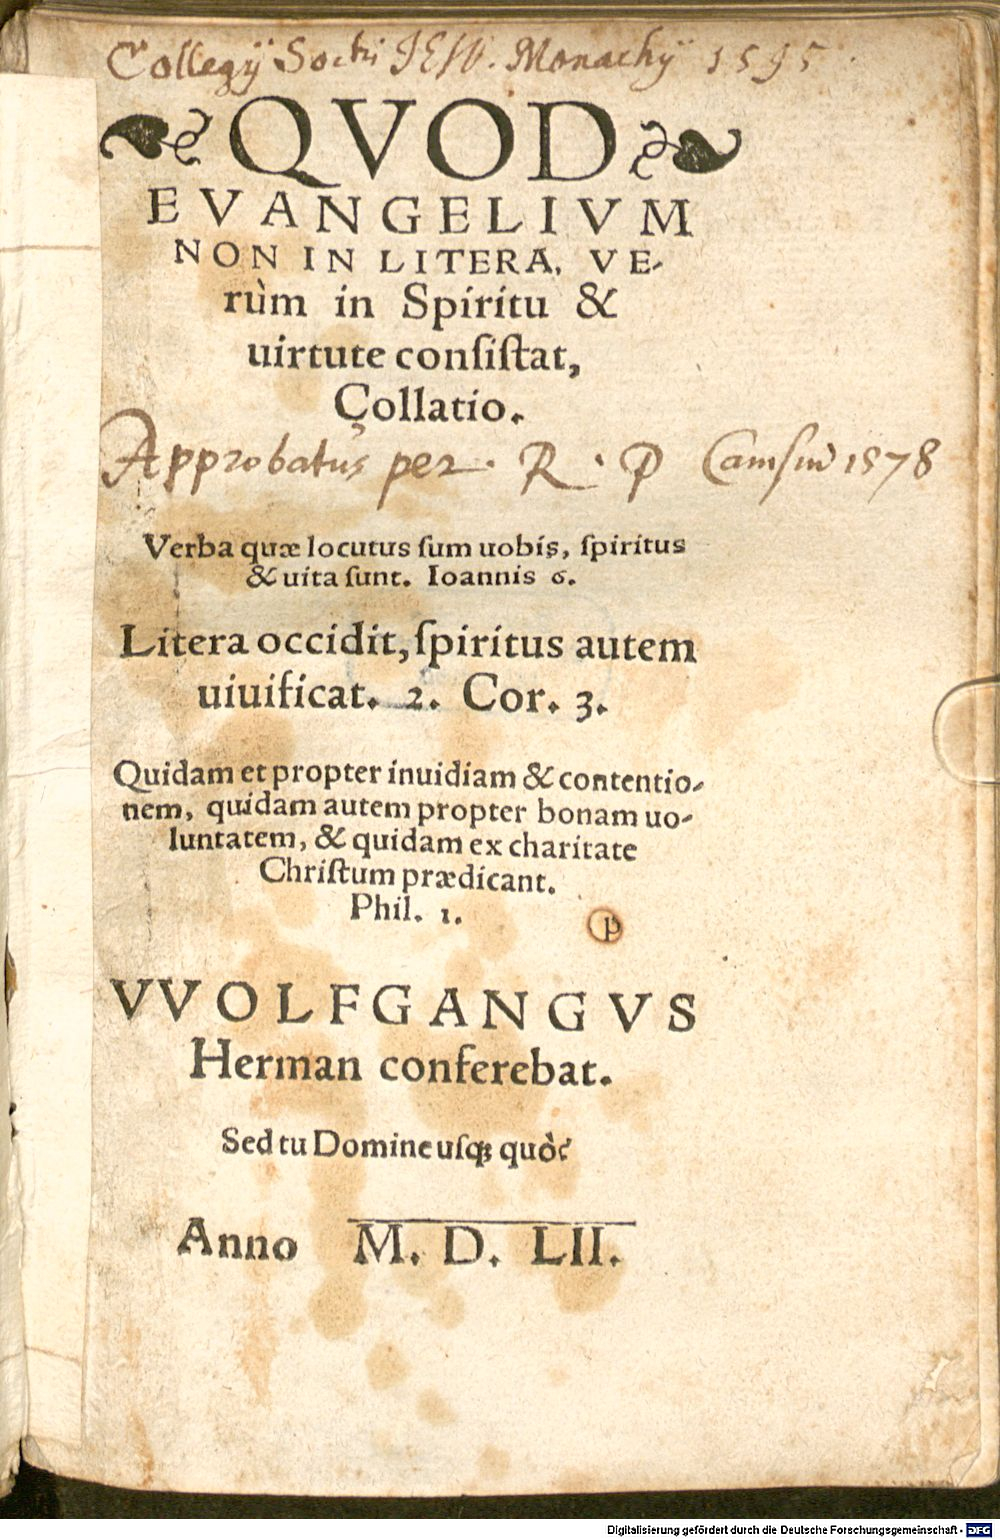 Collegij Soctis IESV. Monachij 1595
QVOD
EVANGELIVM
NON IN LITERA, VE-
rùm in Spiritu &
uirtute consistat,
Collatio.
Approbatus per. R. P Canisiū 1578
Verba quæ locutus sum uobis, spiritus
& uita sunt. Ioannis 6.
Litera occidit, spiritus autem
uiuificat. 2. Cor. 3.
Quidam et propter inuidiam & contentio-
nem, quidam autem propter bonam uo-
luntatem, & quidam ex charitate
Christum prædicant.
Phil. 1.
p
VVOLFGANGVS
Herman conferebat.
Sed tu Domine usq; quò?
Anno M. D. LII.
Digitalisierung gefördert durch die Deutsche Forschungsgemeinschaft - DFG